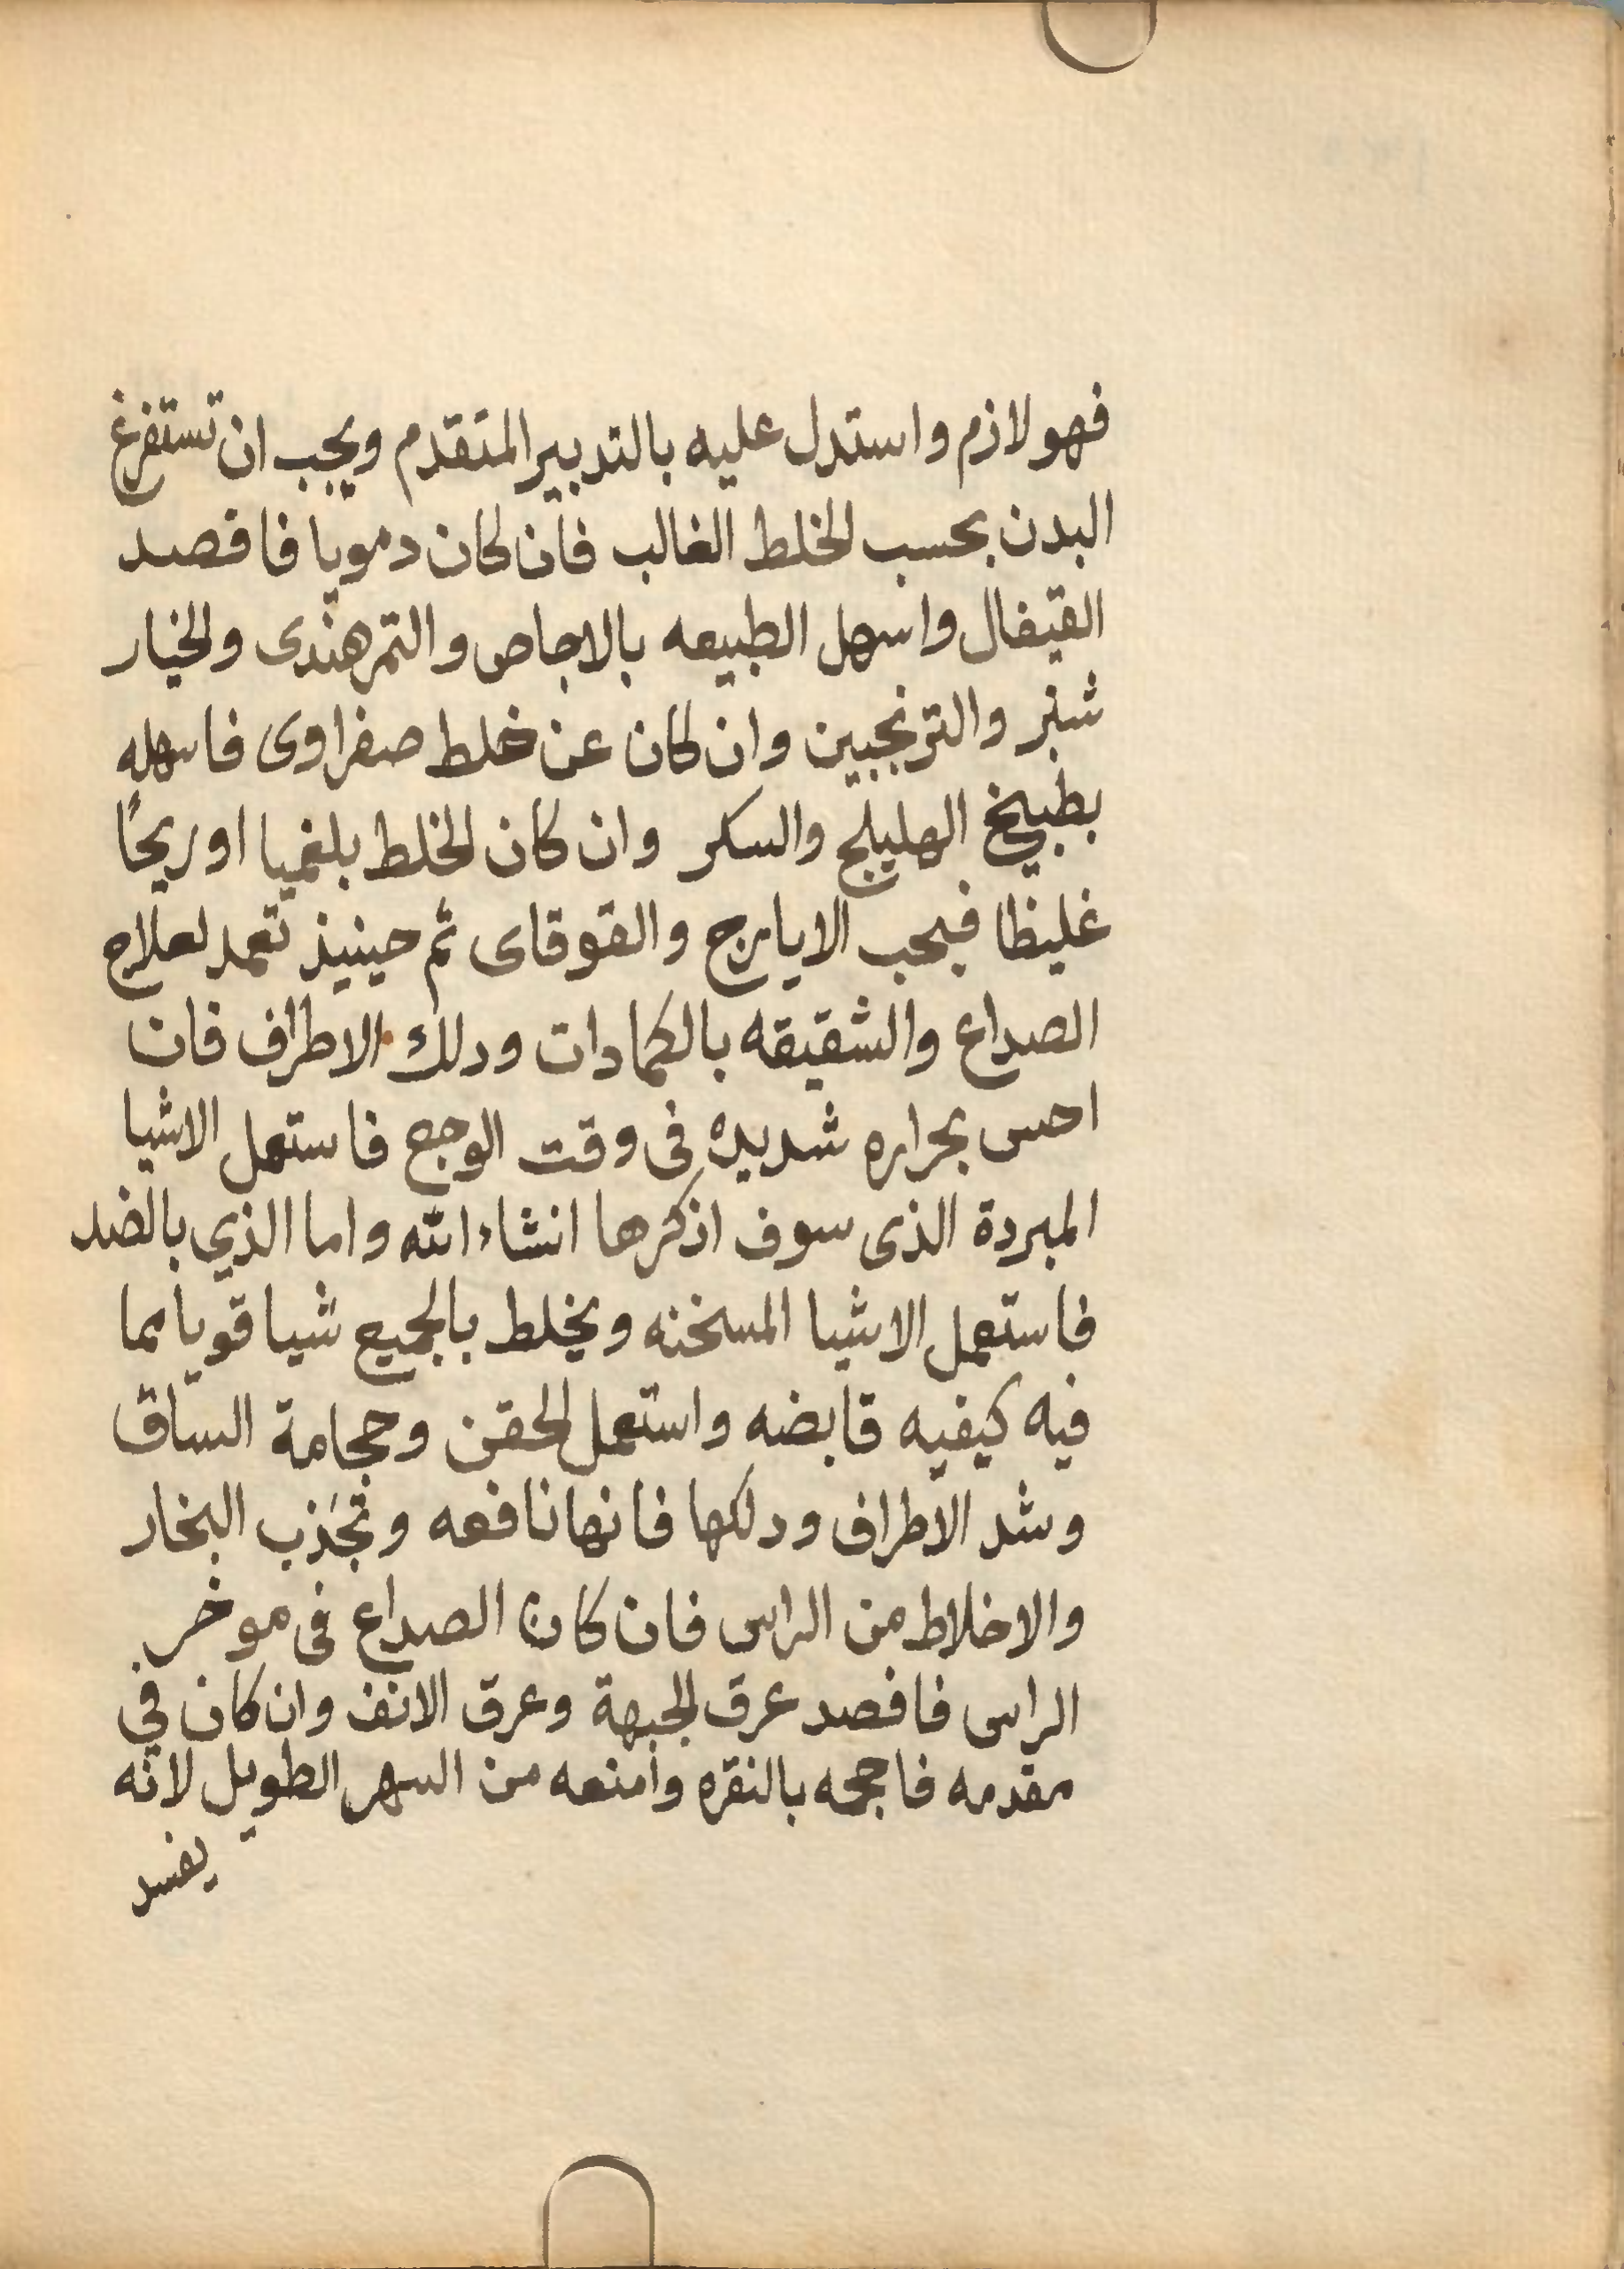 فهو لازم واستدل عليه بالتدبير المتقدم ويجب ان تستفرغ
البدن بحسب الخلط الغالب فان كان دمويا فافصد
القيفال واسهل الطبيعه بالاجاص والتمرهندى والخيار
شنبر والترنجبين وان كان عن خلط صفراوى فاسهله
بطبيخ الهليلج والسكر وان كان الخلط بلغميا او ريحًا
غليظا فبحب الايارج والقوقاى ثم حينيذ تعمد لعلاج
الصداع والشقيقه بالكمادات ودلك الاطراف فان
احس بحراره شديده فى وقت الوجع فاستعمل الاشيا
المبردة الذى سوف اذكرها انشاء الله واما الذي بالضد
فاستعمل الاشيا المسخنه ويخلط بالجميع شيا قويا مما
فيه كيفيه قابضه واستعمل الحقن وحجامة الساق
وشد الاطراف ودلكها فانها نافعه وتجَذب البخار
والاخلاط من الراس فان كان الصداع فى موخر
الراس فافصد عرق الجبهة وعرق الانف وان كان في
مقدمه فاحجمه بالنقره وامنعه من السهر الطويل لانه
يفسد